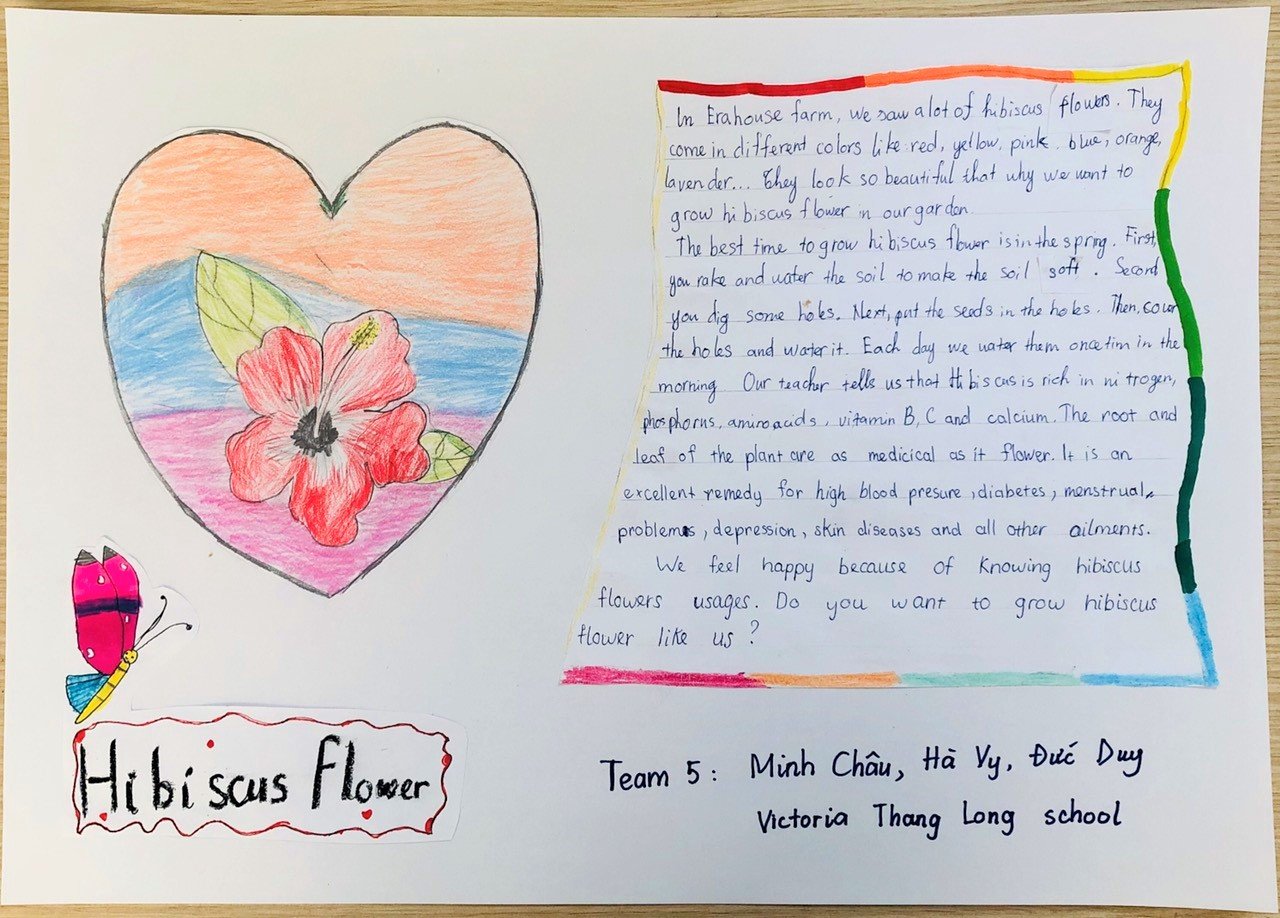 In Erahouse farm, we saw a lot of hibiscus flowers. They
come in different colors like red, yellow, pink, blue, orange,
lavender... They look so beautiful that why we want to
grow hibiscus flower in our garden.
The best time to grow hibiscus flower is in the spring. First,
you rake and water the soil to make the soil soft. Second
you dig some holes. Next, put the seeds in the holes. Then, cover
the holes and water it. Each day we water them once tim in the
morning. Our teacher tells us that Hibiscus is rich in nitrogen,
phosphorus, amino acids, vitamin B, C and calcium. The root and
leaf of the plant are as medicical as it flower. It is an
excellent remedy for high blood presure, diabetes, menstrual
problems, depression, skin diseases and all other ailments.
We feel happy because of knowing hibiscus
flowers usages. Do you want to grow hibiscus
flower like us?
Hibiscus Flower
Team 5: Minh Châu, Hà Vy, Đức Duy
Victoria Thang Long school